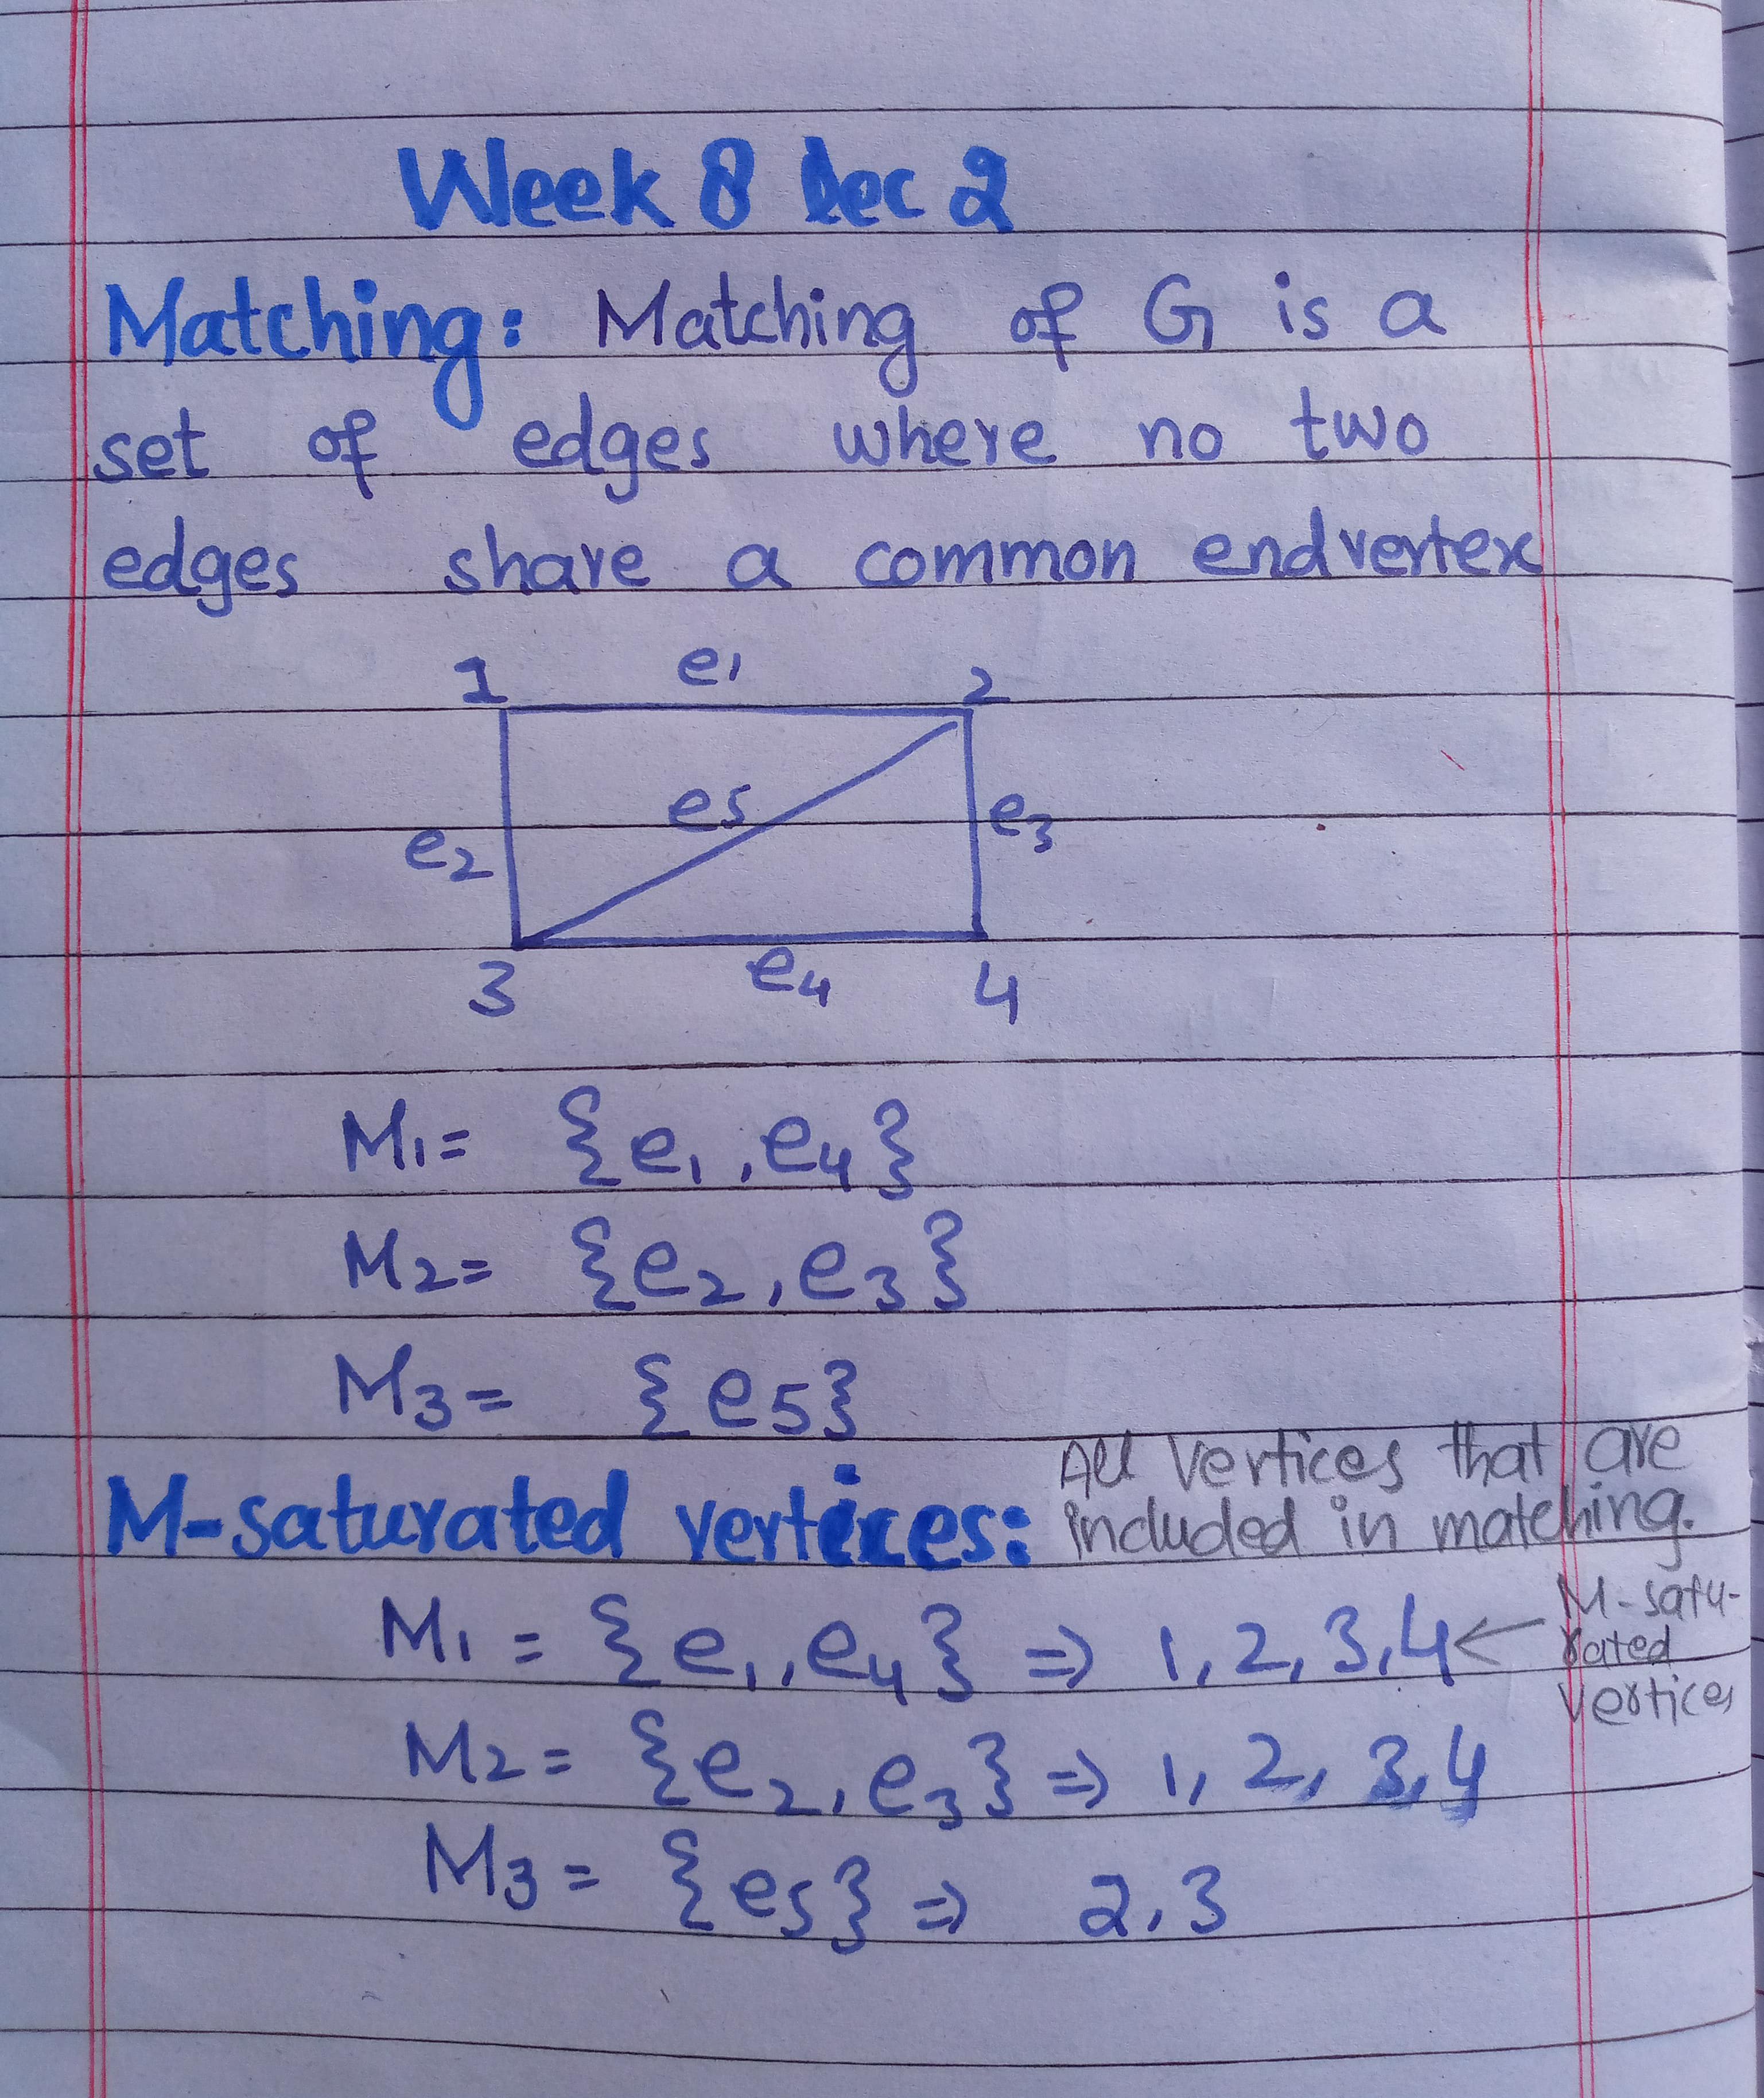 Week 8 Lec 2
Matching: Matching of G is a
set of edges where no two
edges share a common endvertex
1 e1 2
e5 e3
e2
3 e4 4
M1= {e1, e4}
M2= {e2, e3}
M3= {e5}
All vertices that are
M-saturated vertices: included in matching.
M1 = {e1, e4} => 1, 2, 3, 4 ← M-satu-
rated
vertices
M2= {e2, e3} => 1, 2, 3, 4
M3 = {e5} => 2, 3